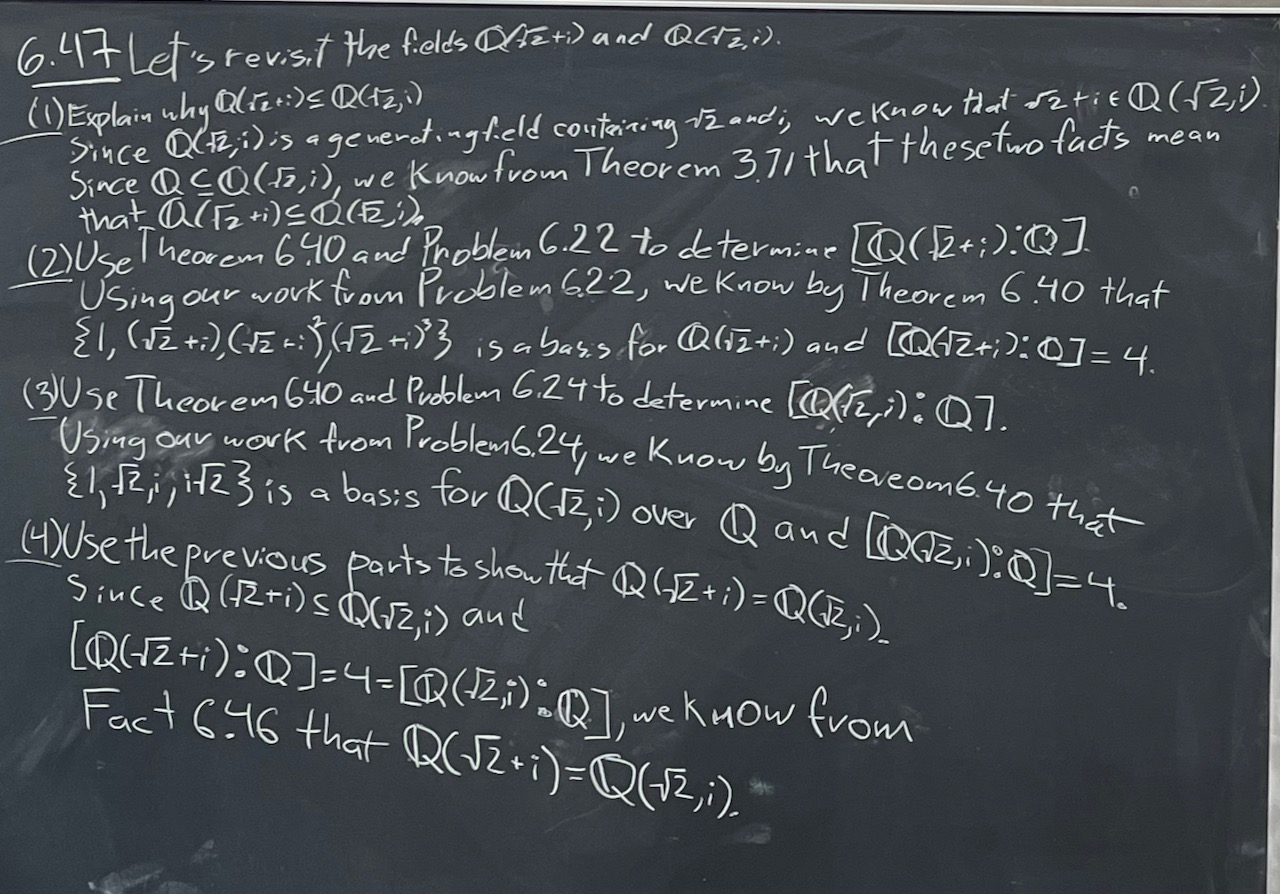 6.47 Let's revisit the fields ℚ(√2+i) and ℚ(√2,i).
(1) Explain why ℚ(√2+i)⊆ℚ(√2,i)
Since ℚ(√2,i) is a generating field containing √2 and i, we know that √2+i∈ℚ(√2,i).
Since ℚ⊆ℚ(√2,i), we know from Theorem 3.71 that these two facts mean
that ℚ(√2+i)⊆ℚ(√2,i).
(2) Use Theorem 6.40 and Problem 6.22 to determine [ℚ(√2+i):ℚ].
Using our work from Problem 6.22, we know by Theorem 6.40 that
{1, (√2+i), (√2+i)², (√2+i)³} is a basis for ℚ(√2+i) and [ℚ(√2+i):ℚ]=4.
(3) Use Theorem 6.40 and Problem 6.24 to determine [ℚ(√2,i):ℚ].
Using our work from Problem 6.24, we know by Theoreom 6.40 that
{1,√2,i,i√2} is a basis for ℚ(√2,i) over ℚ and [ℚ(√2,i):ℚ]=4.
(4) Use the previous parts to show that ℚ(√2+i)=ℚ(√2,i).
Since ℚ(√2+i)⊆ℚ(√2,i) and
[ℚ(√2+i):ℚ]=4=[ℚ(√2,i):ℚ], we know from
Fact 6.46 that ℚ(√2+i)=ℚ(√2,i).